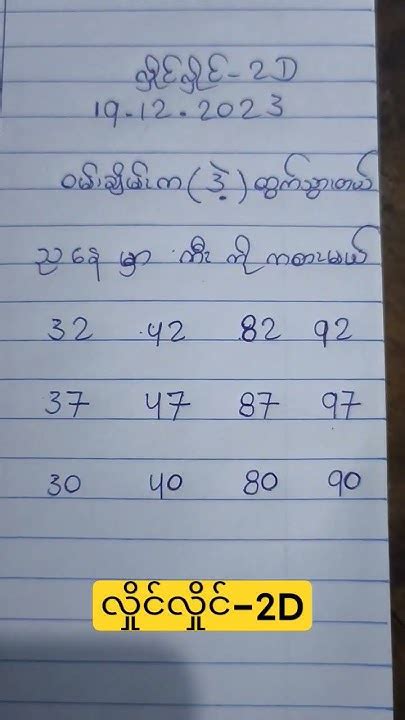 လှိုင်လှိုင်-2D
19.12.2023
ဝမ်းချိန်းက (ဒဲ့) ထွက်သွားတယ်
ညနေ မှာ ကီး ကို ကစားမယ်
32 42 82 92
37 47 87 97
30 40 80 90
လှိုင်လှိုင်-2D